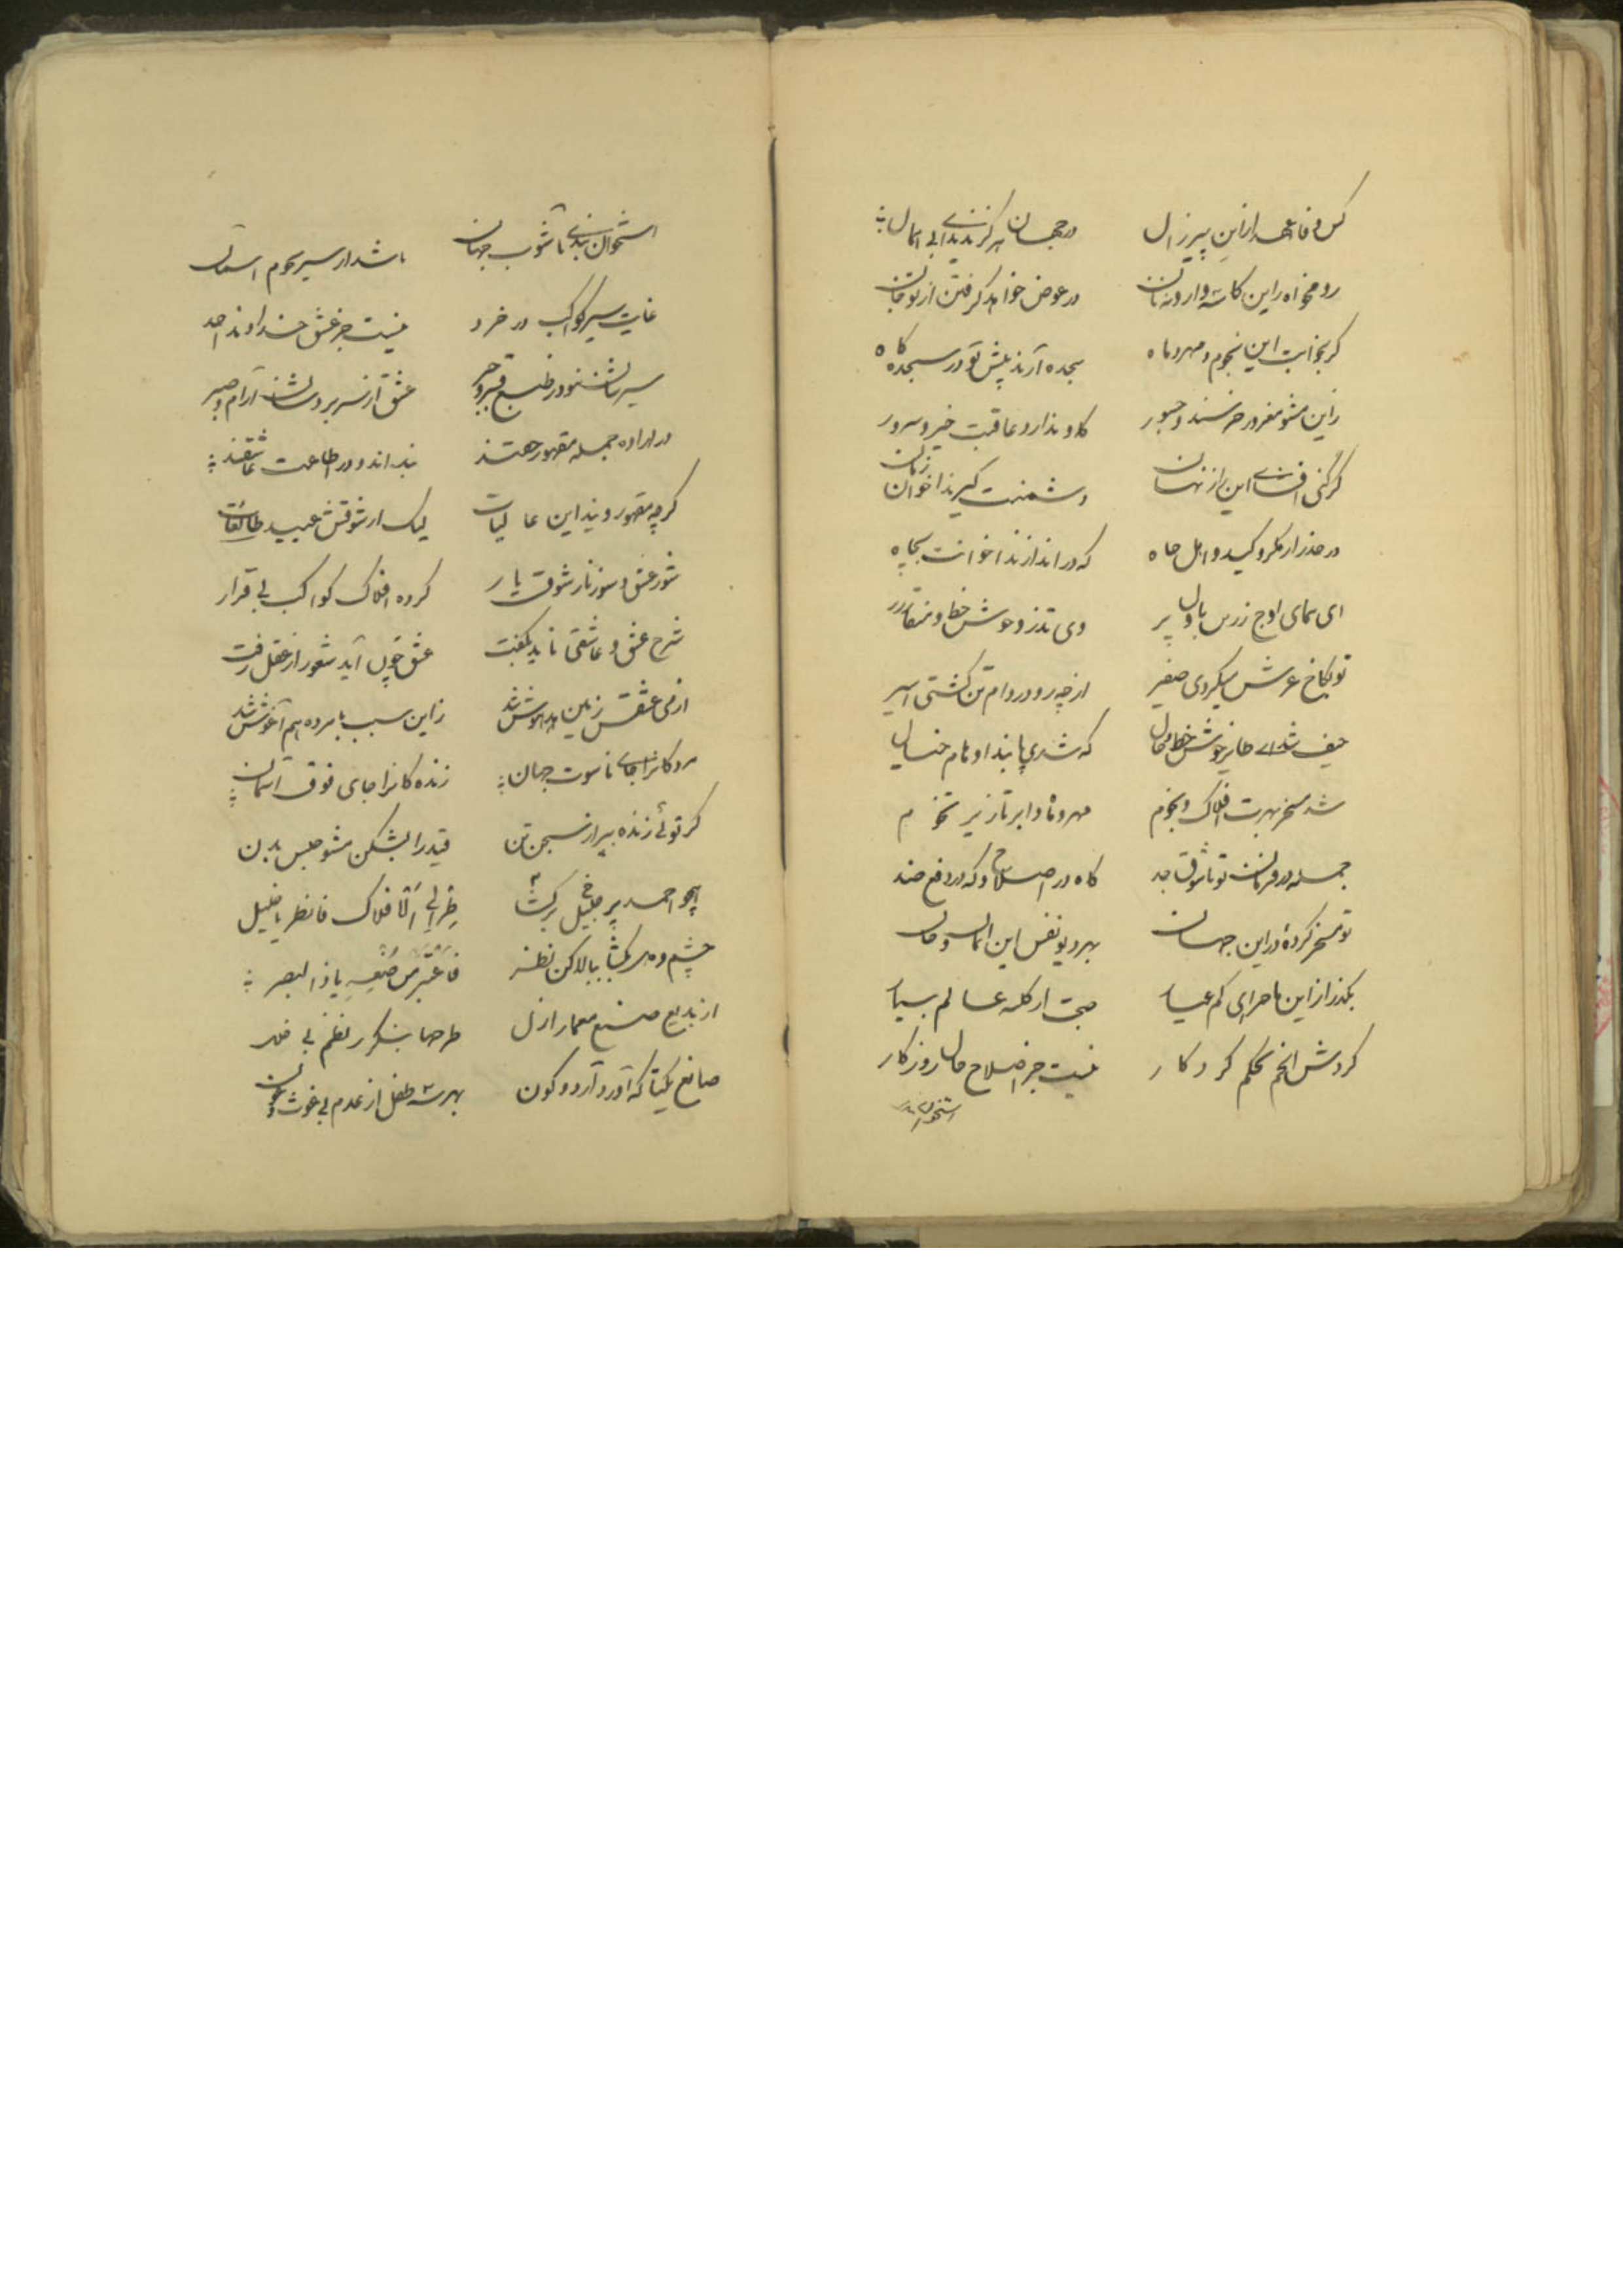 کس وفا از این پیر زال در جهان هرگز ندیده
رو مخواه از این کاسه وارونه نان در عوض خواهد گرفتن از تو جان
گر بخوابت این نجوم و مهر و ماه سجده آرند پیش تو در سجده گاه
زاین مشو مغرور خرسند و جبور کاو ندارد عاقبت خیر و سرور
گر کنی افشای این راز نهان دشمنت گیرند اخوان زمان
در حذر از مکر و کید و اهل جاه که در اندازند اخوانت بچاه
ای همای اوج زرین بال و پر وی تذرو خوش خط و منقار
تو بکاخ عرش میکردی صفیر از چه رو در دام تن گشتی اسیر
حیف شد ای طایر خوش خط و خال که شدی پابند اوهام خیال
شد مسخر بهرت افلاک و نجوم مهر و ماه و ابر تا زیر تخوم
جمله در فرمانت تو تا شوق جد گاه در اصلاح و گه در دفع ضد
تو مسخر کردهٔ در این جهان بهر دیو نفس این
بگذر از این ماجرای کم عیار صحبت از کله عالم بیار
گردش انجم بحکم کردگار نیست جز اصلاح حال روزگار
استخوان
استخوان بندی تا شوب جهان باشد از سیر نجوم آسمان
غایت سیر کواکب در خرد نیست جز عشق خداوند احد
سیرشان نبود در طبع قسر و جبر عشق از سر بردشان آرام و صبر
در اراده جمله مقهور حقند بنده اند و در اطاعت عاشقند
گرچه مقهور ویند این عالیات لیک از شوقش عبید طائعات
شور عشق و سوز نار شوق یار کرده افلاک کواکب بی قرار
شرح عشق و عاشقی ناید بگفت عشق چون آید شعور از عقل رفت
از می عشقش زمین مدهوش شد زاین سبب با مرده هم آغوش شد
مردگانرا جای ناسوت جهان زنده گانرا جای فوق آسمان
گر توئی زنده بپر از سجن تن قید را بشکن مشو حبس بدن
همچو احمد پر برگشا طر الی الافلاک فانظر یا خلیل
چشم دل بگشا ببالا کن نظر فاعتبر من صنعه یا ذا البصر
از بدیع صنع معمار ازل طرحها بنگر نظم بی خلل
صانع یکتا که آورد آرد و کون بهر تو طفل از عدم بی غوث و عون